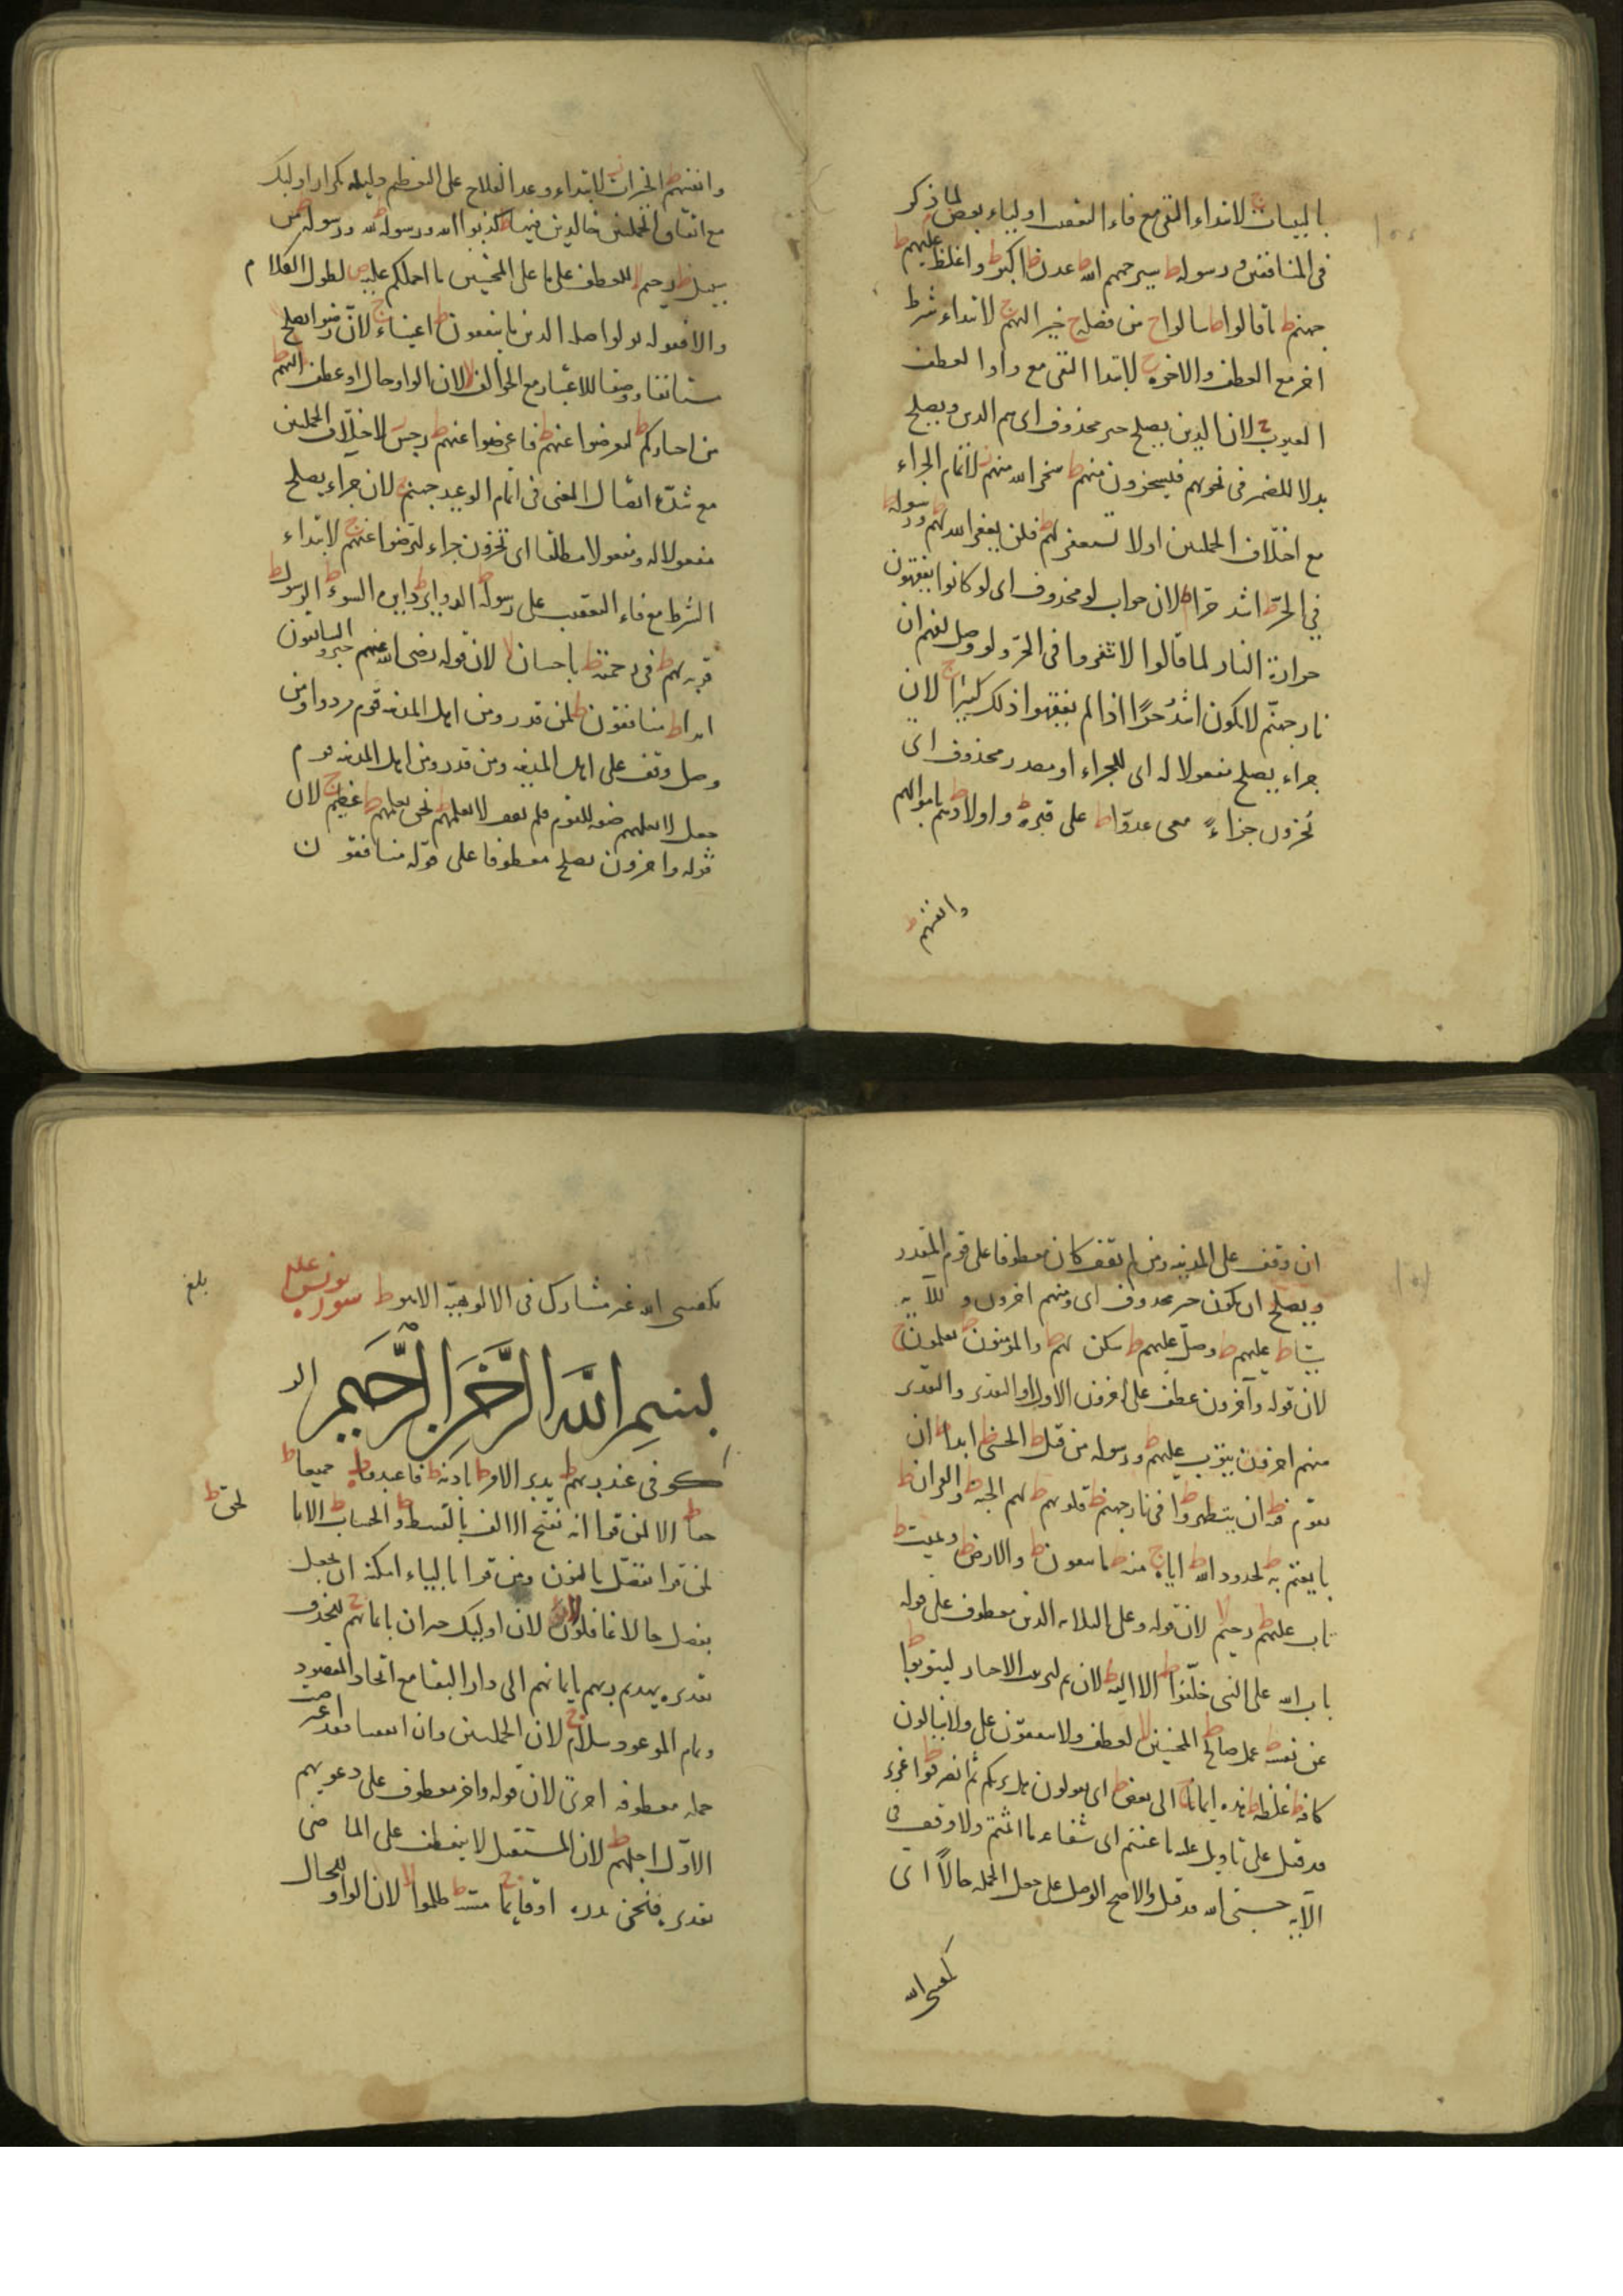 بالبينات ج لابتداء النفي مع فاء التعقيب اولياء بعض م لما ذكر
في المنافقين ورسوله ط سيرحمهم الله ط عدن ط اكبر ط واغلظ عليهم ط
جهنم ط ما قالوا ط ينالوا ج من فضله ج خيرا لهم ج لابتداء شرط
اخر مع العطف والاخرة ج لابتداء النفي مع واو العطف
الغيوب ج لان الذين يصلح خبر محذوف اي هم الذين ويصلح
بدلا للضمير في نجويهم فيسخرون منهم ط سخر الله منهم ز لاتمام الجزاء
مع اختلاف الجملتين او لا تستغفر لهم ط فلن يغفر الله لهم ط ورسوله ط
في الحر ط اشد حرا م لان جواب لو محذوف اي لو كانوا يفقهون
حرارة النار لما قالوا لا تنفروا في الحر ولو وصل لفهم ان
نار جهنم لا يكون اشد حرا اذا لم يفقهوا ذلك كثيرا ج لان
جزاء يصلح مفعولا له اي للجزاء او مصدر محذوف اي
يجزون جزاء معي عدوا ط على قبره ط واولادهم ط باموالهم
وانفسهم ط
وانفسهم ط الخيرات ز لابتداء وعد الفلاح على التعظيم دليله تكرار اولئك
مع اتفاق الجملتين خالدين فيها ط كذبوا الله ورسوله ط لله ورسوله ط من
سبيل ط رحيم لا للعطف على ما على المحسنين ما احملكم عليه ص لطول الكلام
حزنا الا يجدوا ما ينفقون ط اغنياء ج لان رضوا يصلح
مستانفا ووصفا للاغنياء مع الخوالف لا لان الواو حال او عطف اليهم ط
من اخباركم ط لتعرضوا عنهم ط فاعرضوا عنهم ط رجس ز لاختلاف الجملتين
مع شدة اتصال المعنى في اتمام الوعيد جهنم ج لان جزاء يصلح
مفعولا له ومفعولا مطلقا اي يجزون جزاء لترضوا عنهم ج لابتداء
الشرط مع فاء التعقيب على رسوله ط الدواير ط دايرة السوء ط الرسول ط
قربة لهم ط في رحمته ط باحسان لا لان قوله رضي الله عنهم خبر والسابقون
ابدا ط منافقون ط لمن قدر ومن اهل المدينة قوم مردوا ومن
وصل وقف على اهل المدينة ومن قدر ومن اهل المدينة قوم
جعل لا تعلمهم صفة للقوم فلم يقف لا تعلمهم ط نحن نعلمهم ط عظيم ج لان
قوله واخرون يصلح معطوفا على قوله منافقون
ان وقف على المدينة ومن لم يقف كان معطوفا على قوم المقدر
ويصلح ان يكون خبر محذوف اي ومنهم اخرون
سيئا ط عليهم ط وصل عليهم ط سكن لهم ط والمؤمنون ط تعملون ج
لان قوله وآخرون عطف على اخرون الاول او التقدير والتقدير
منهم اخرون يتوب عليهم ط ورسوله من قبل ط الحسنى ط ابدا ط ان
تقوم فيه ط ان يتطهروا ط في نار جهنم ط قلوبهم ط لهم الجنة ط والقران ط
بايعتم به ط لحدود الله ط اياه ج منه ط ما يتقون ط والارض ط ويميت ط
تاب عليهم ط رحيم لا لان قوله وعلى الثلاثة الذين معطوف على قوله
تاب الله على النبي خلفوا ط الا اليه ط لان ثم لترتيب الاخبار ليتوبوا ط
عن نفسه ط عمل صالح ط المحسنين لا لعطف ولا ينفقون على ولا ينالون
كافة ط غلظة ط هذه ايمانا ج الى بعض ط اي يقولون هل يريكم ثم انصرفوا ط عزيز
قد قيل على تاويل عليه ما عنتم اي شفاعة ما اثمتم ولا وقف في
الآية حسبي الله قد قيل والاصح الوصل على جعل الجملة حالا اي
يكفيني الله
يكفيني الله غير مشارك في الالوهية الا هو ط سورة يونس علم
بلغ
بسم الله الرحمن الرحيم الر
كوفي عند ربهم ط يدبر الامر ط باذنه ط فاعبدوه ط جميعا ط
حقا ط الا لمن قرا انه بفتح الالف بالقسط ط والحساب ط الا بالحق ط
لمن قرا نفصل بالنون ومن قرا بالياء امكنه ان يجعل
يفصل حالا غافلون لا لان اولئك خبر ان بايمانهم ج لحذف
تقديره يهديهم ربهم بايمانهم الى دار البقا مع اتحاد المقصود
وتمام الموعود سلام ج لان الجملتين وان اتفقتا فقد اعترضت
جملة معطوفة اخرى لان قوله واخر معطوف على دعويهم
الاول اجلهم ط لان المستقبل لا ينعطف على الماضي
تقديره فنحن نذر او قايما ج مسه ط ظلموا لا لان الواو للحال